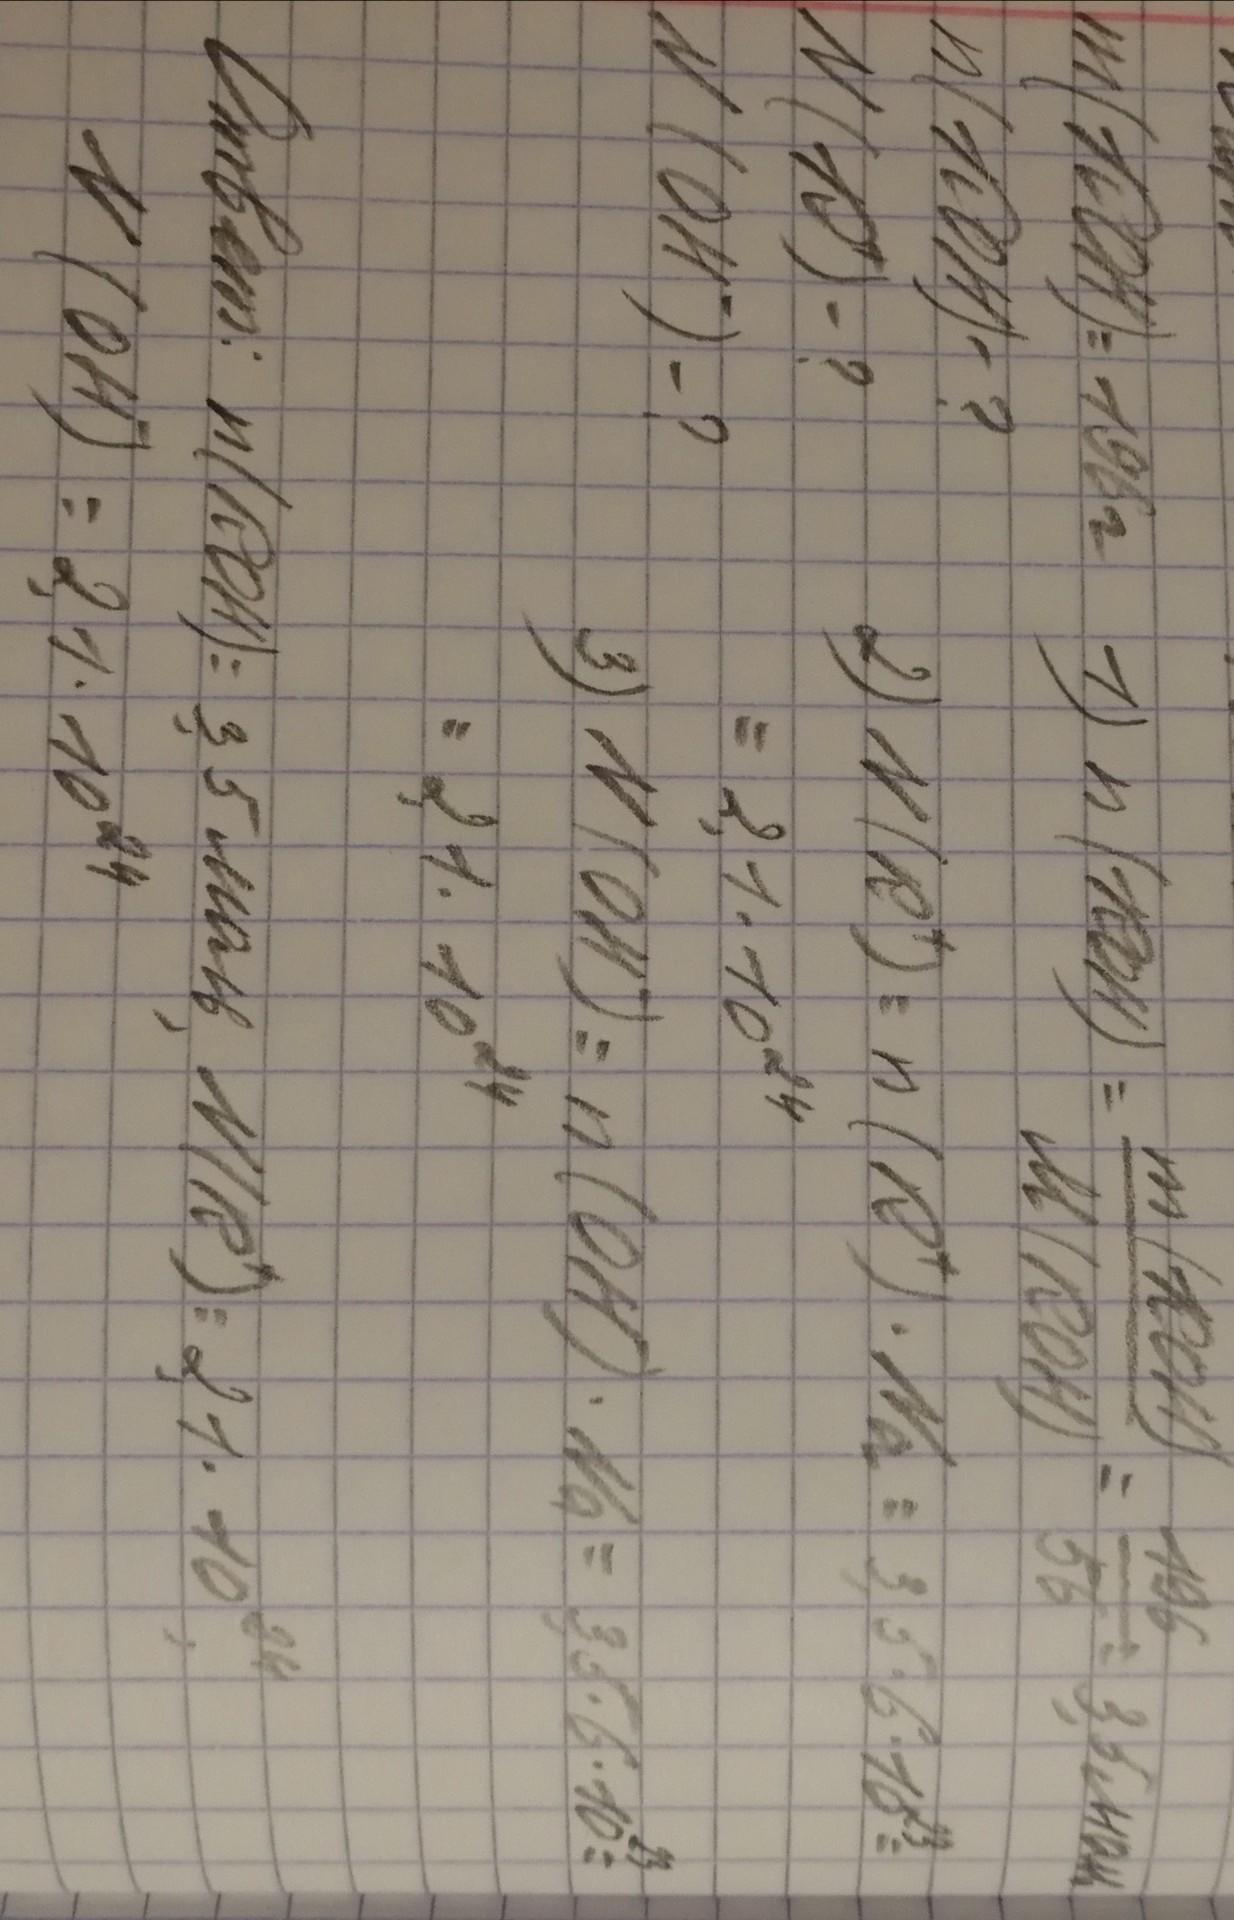 m(KOH)=196г
n(KOH)-?
N(K⁺)-?
N(OH⁻)-?
1) n(KOH) = m(KOH)/M(KOH) = 196/56 = 3,5 моль
2) N(K⁺) = n(K⁺)·Na = 3,5·6·10²³=
= 2,1·10²⁴
3) N(OH⁻) = n(OH⁻)·Na = 3,5·6·10²³=
= 2,1·10²⁴
Ответ: n(KOH)= 3,5 моль, N(K⁺)= 2,1·10²⁴,
N(OH⁻) = 2,1·10²⁴